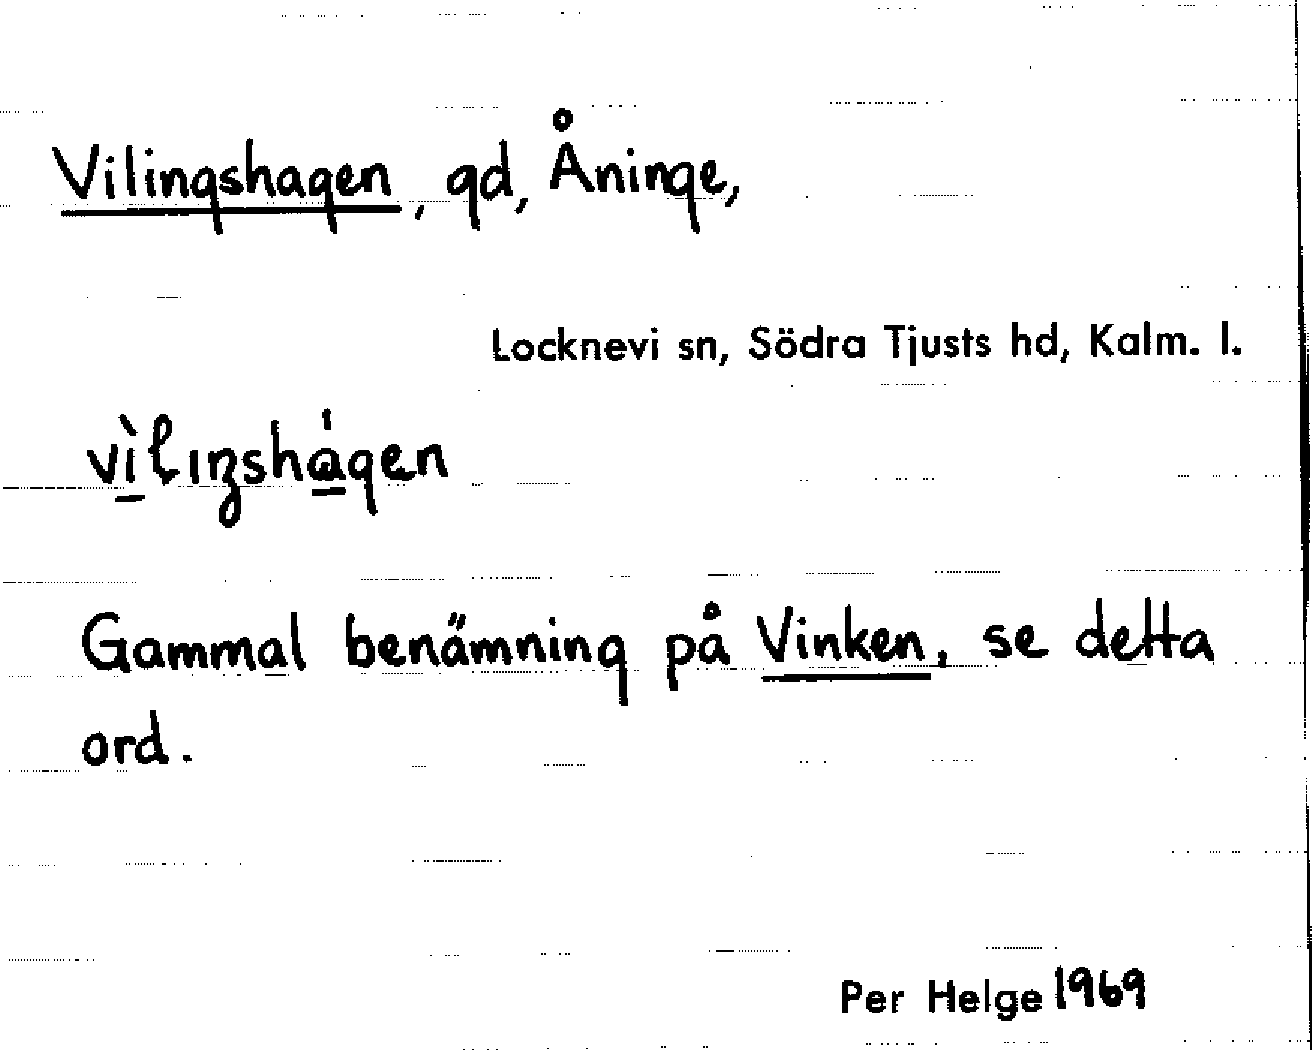 Vilingshagen, gd, Åninge,
Locknevi sn, Södra Tjusts hd, Kalm. l.
vìlıŋshágen
Gammal benämning på Vinken, se detta
ord.
Per Helge 1969